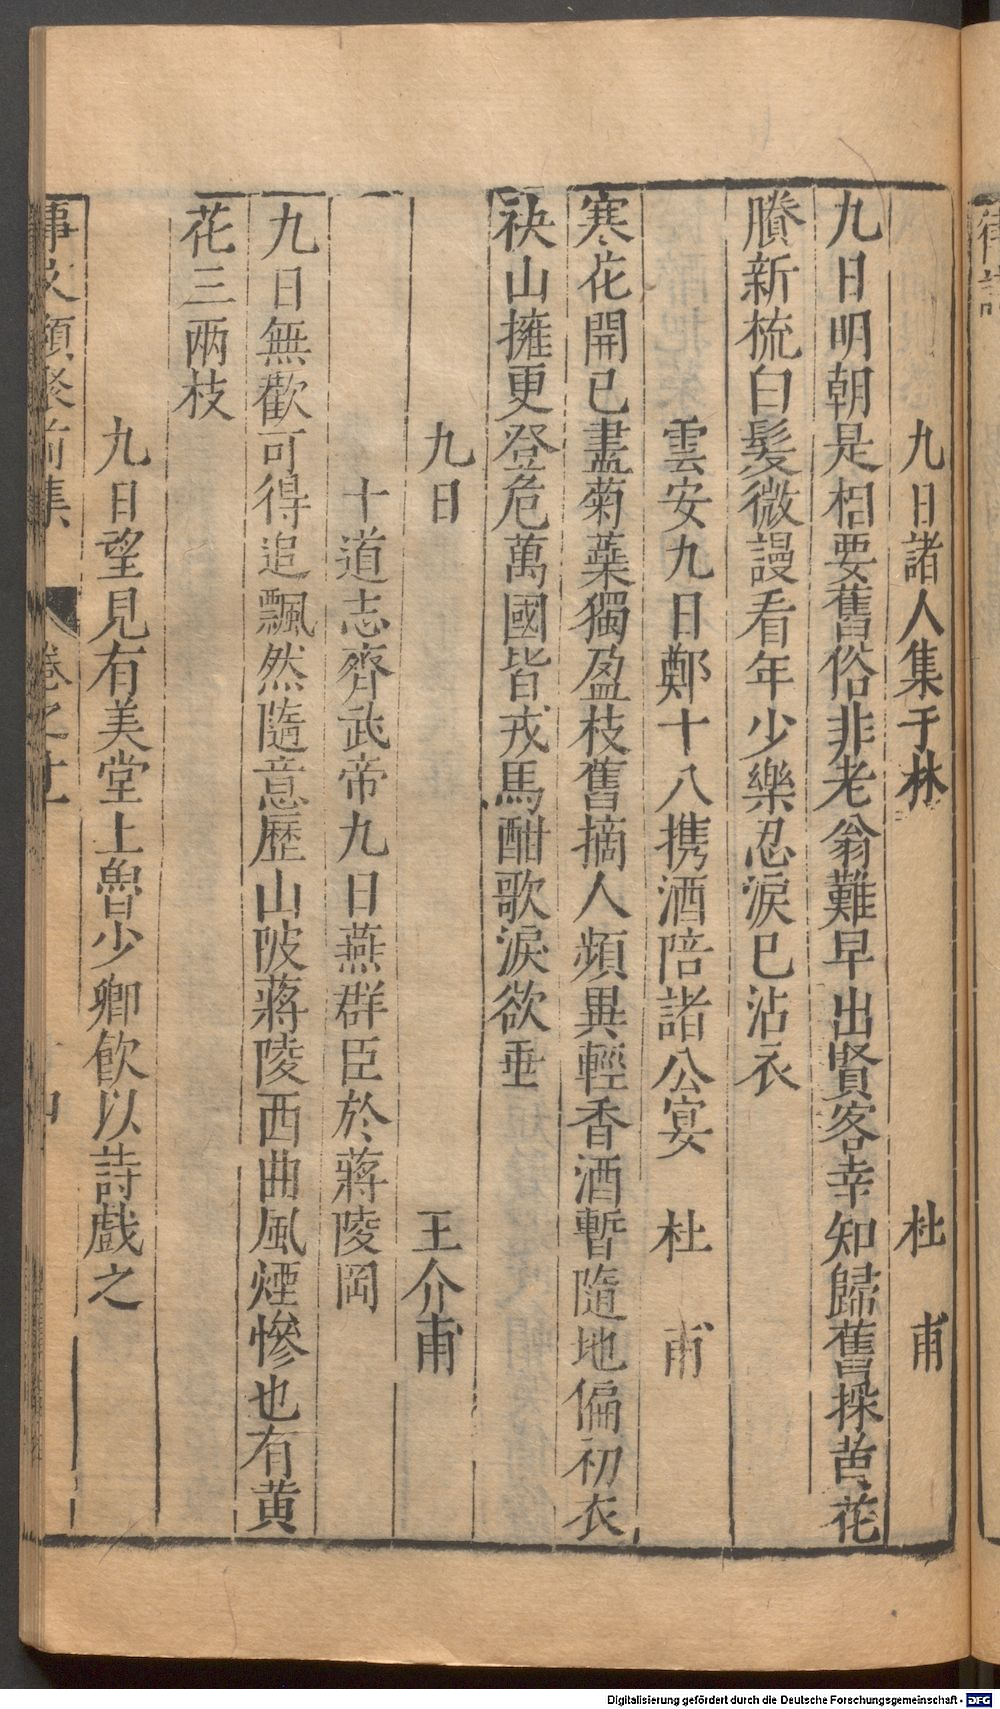 九日諸人集于林　杜甫
九日明朝是相要舊俗非老翁難早出賢客幸知歸舊採黄花
賸新梳白髮微謾看年少樂忍淚已沾衣
雲安九日鄭十八携酒陪諸公宴　杜甫
寒花開已盡菊蘂獨盈枝舊摘人頻異輕香酒暫隨地偏初衣
袂山擁更登危萬國皆戎馬酣歌淚欲垂
九日　王介甫
十道志齊武帝九日燕群臣於蔣陵岡
九日無歡可得追飄然隨意歷山陂蔣陵西曲風煙慘也有黄
花三兩枝
九日望見有美堂上魯少卿飲以詩戲之
事文類聚前集　卷之十一
Digitalisierung gefördert durch die Deutsche Forschungsgemeinschaft - DFG